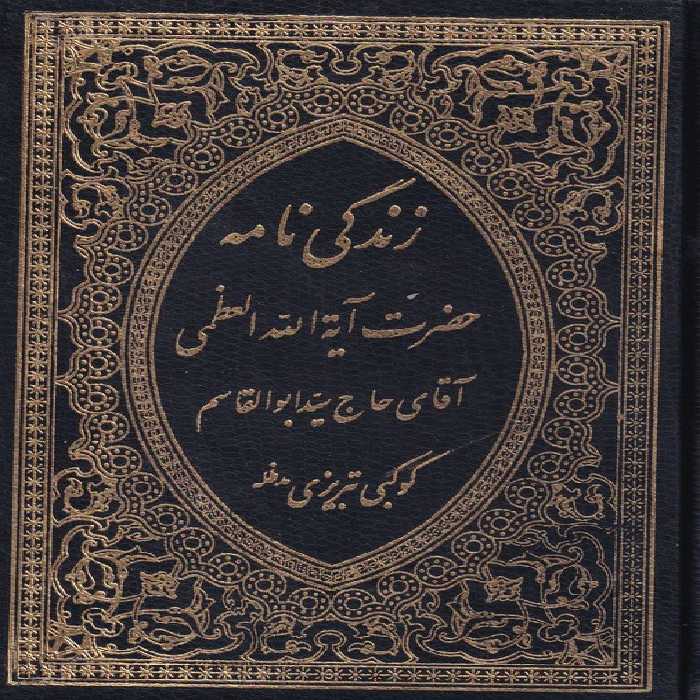 زندگی نامه
حضرت آیة الله العظمی
آقای حاج سید ابوالقاسم
کوکبی تبریزی مدظله